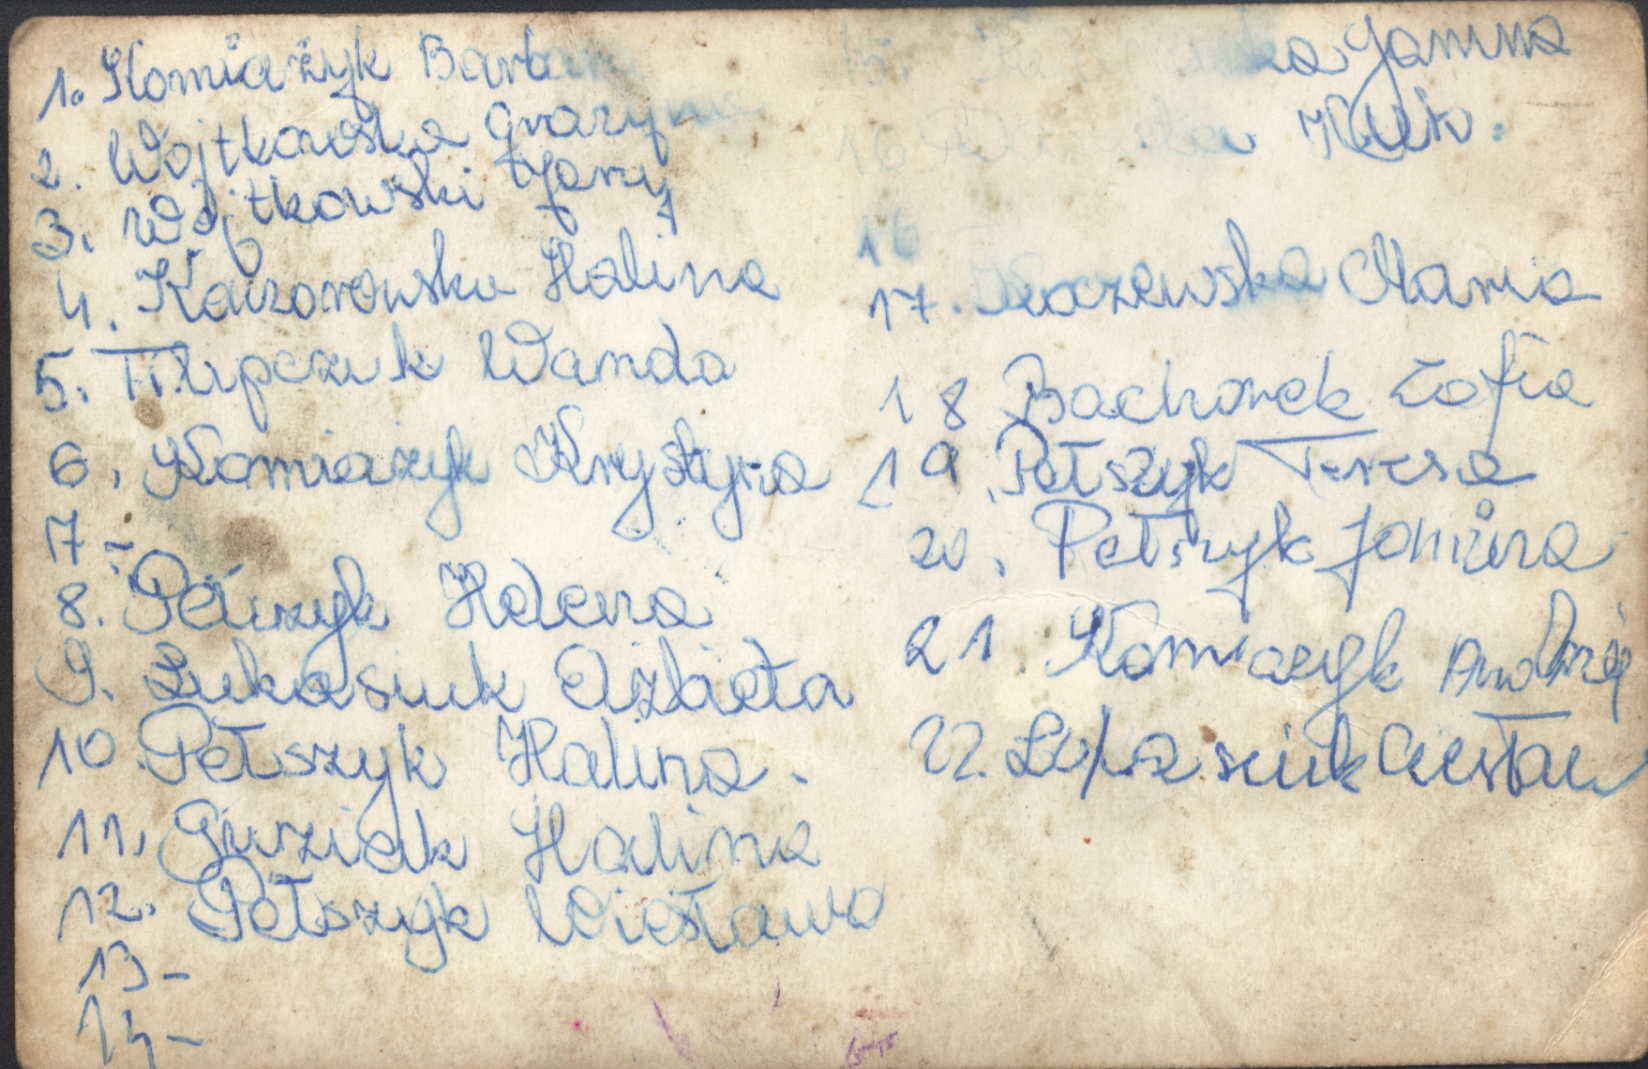 1. Komiażyk Barbara
2. Wojtkowska Grazyna
3. Wojtkowski Jerzy
4. Kaczorowska Halina
5. Filipczuk Wanda
6. Komiazyk Krystyna
7 -
8. Petszyk Helena
9. Lukasiuk Elżbieta
10. Petszyk Halina.
11. Guziek Halina
12. Petszyk Wiesława
13 -
14 -
15. Janina
16
16
17. Maria
18 Bachorek Zofia
19. Petszyk Teresa
20. Petszyk Janina
21. Komiazyk Andrzej
22. Lukasiuk Wiesław